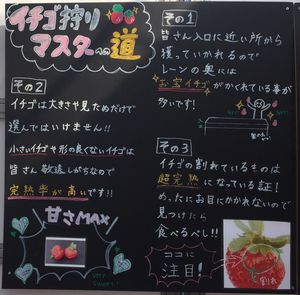 イチゴ狩り
マスターへの道
その1
皆さん入口に近い所から
獲っていかれるので
レーンの奥には
お宝イチゴがかくれている事が
多いです!
その2
イチゴは大きさや見ためだけで
選んではいけません!!
小さいイチゴや形の良くないイチゴは
皆さん敬遠しがちなので
完熟率が高いです!!
甘さMAX
VERY
SWEET!
その3
イチゴの割れているものは
超完熟になっている証!
めったにお目にかかれないので
見つけたら
食べるべし!!
ココに
注目!
割れ